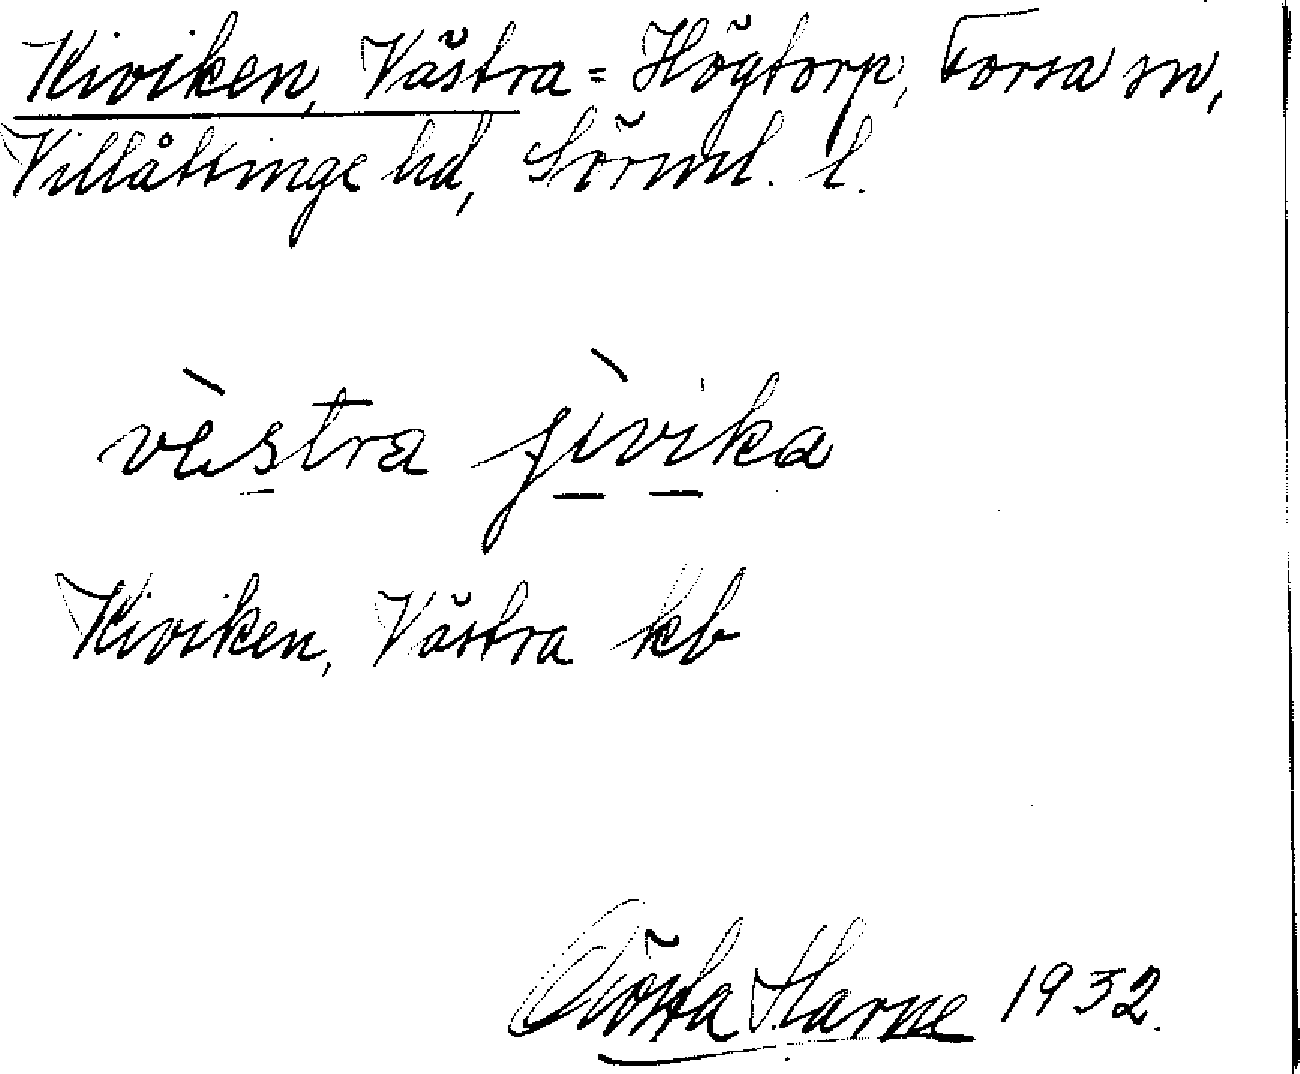 Kiviken, Västra = Högtorp, Forsa sn,
Villåttinge hd, Sörml. l.
västra jivika
Kiviken, Västra kb
Gösta Harne 1932.